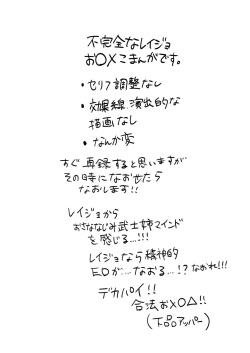 不完全なレイジョ
お〇×こまんがです。
・セリフ調整なし
・効果線、演出的な
描画なし
・なんか変
すぐ再録すると思いますが
その時になおせたら
なおします!!
レイジョから
おさななじみ武士姉マインド
を感じる…!!!
レイジョなら精神的
EDが…なおる…!?なおれ!!!
デカパイ!!
合法お×〇△!!